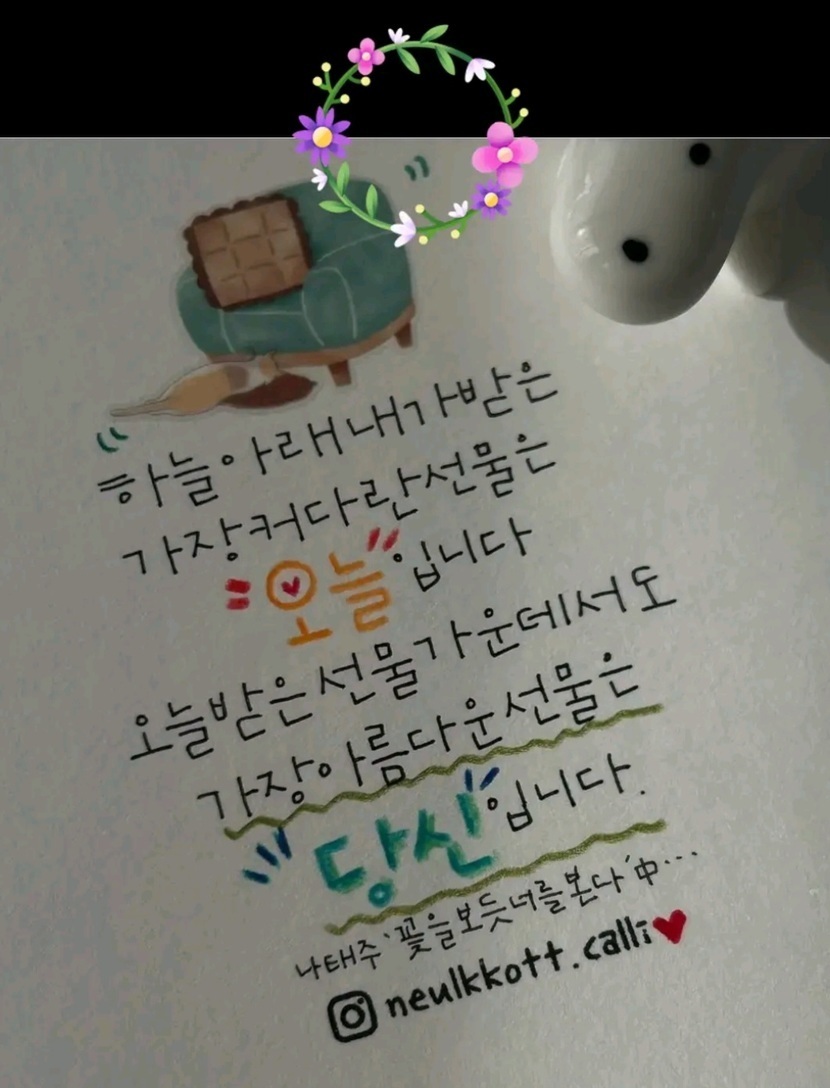 하늘아래내가받은
가장커다란선물은
오늘입니다
오늘받은선물가운데서도
가장아름다운선물은
당신입니다.
나태주 '꽃을보듯너를본다'中...
neulkkott.calli